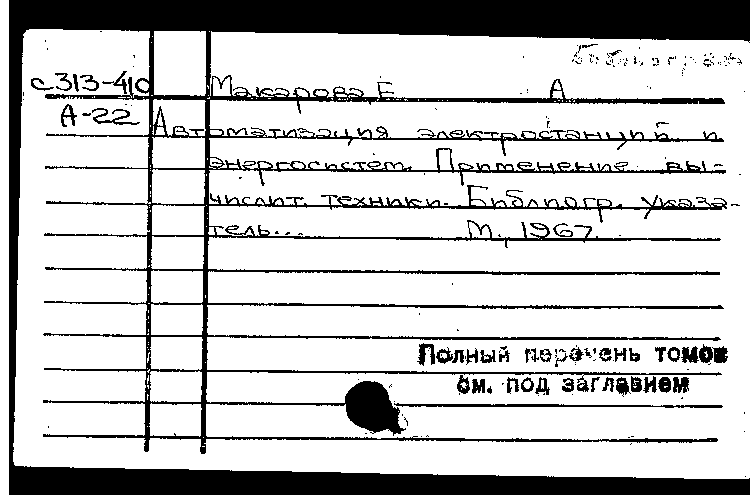 Библиограф
с313-410 Макарова, Е А
А-22 Автоматизация электростанций и
энергосистем. Применение вы-
числит. техники. Библиогр. указа-
тель... М., 1967.
Полный перечень томов
см. под заглавием